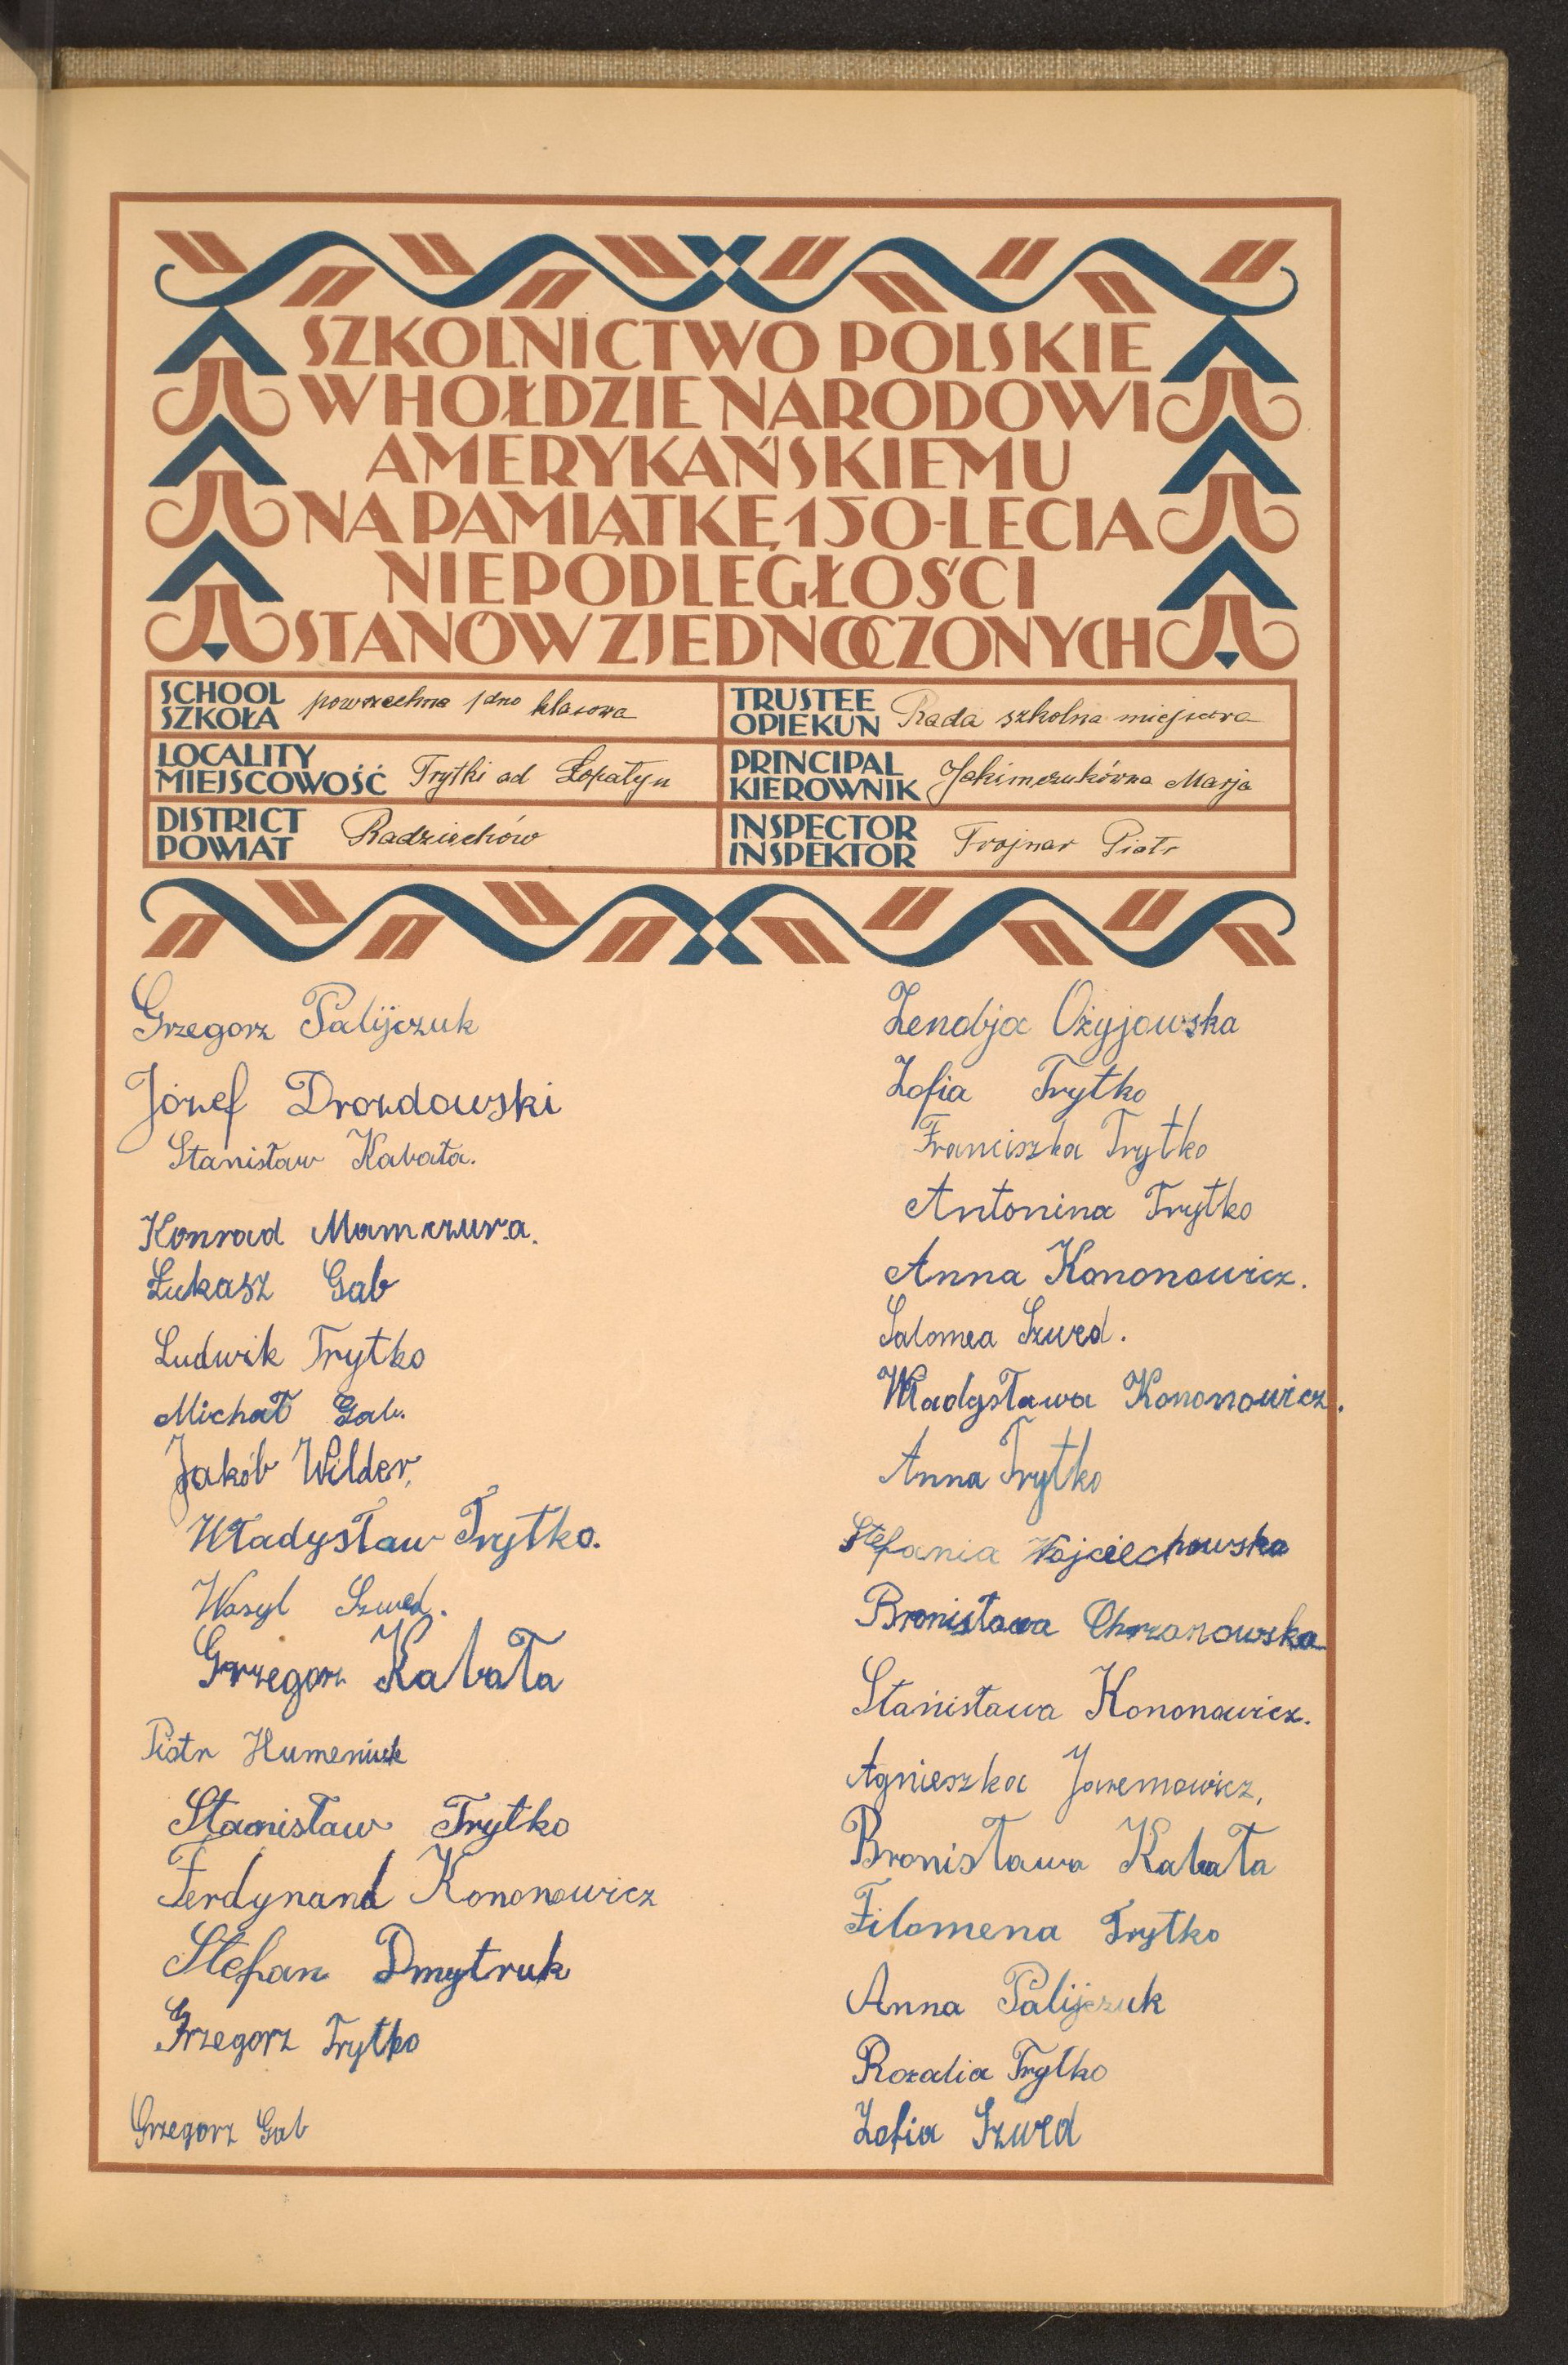 SZKOLNICTWO POLSKIE
W HOŁDZIE NARODOWI
AMERYKAŃSKIEMU
NA PAMIĄTKĘ 150-LECIA
NIEPODLEGŁOŚCI
STANÓW ZJEDNOCZONYCH
SCHOOL
SZKOŁA powszechna 1dno klasowa
TRUSTEE
OPIEKUN Rada szkolna miejscowa
LOCALITY
MIEJSCOWOŚĆ Trytki ad Łopatyn
PRINCIPAL
KIEROWNIK Jakimczukówna Marja
DISTRICT
POWIAT Radziechów
INSPECTOR
INSPEKTOR Trojnar Piotr
Grzegorz Palijczuk
Józef Drozdowski
Stanisław Kabała.
Konrad Mamczura.
Łukasz Gab
Ludwik Trytko
Michał Gab.
Jakób Wilder,
Władysław Trytko.
Wasyl Szwed.
Grzegorz Kabała
Piotr Humeniuk
Stanisław Trytko
Ferdynand Kononowicz
Stefan Dmytruk
Grzegorz Trytko
Grzegorz Gab
Zenobja Ożyjowska
Zofia Trytko
Franciszka Trytko
Antonina Trytko
Anna Kononowicz.
Salomea Szwed.
Władysława Kononowicz.
Anna Trytko
Stefania Wojciechowska
Bronisława Chrzanowska
Stanisława Kononowicz.
Agnieszka Jaremowicz,
Bronisława Kabała
Filomena Trytko
Anna Palijczuk
Rozalia Trytko
Zofia Szwed